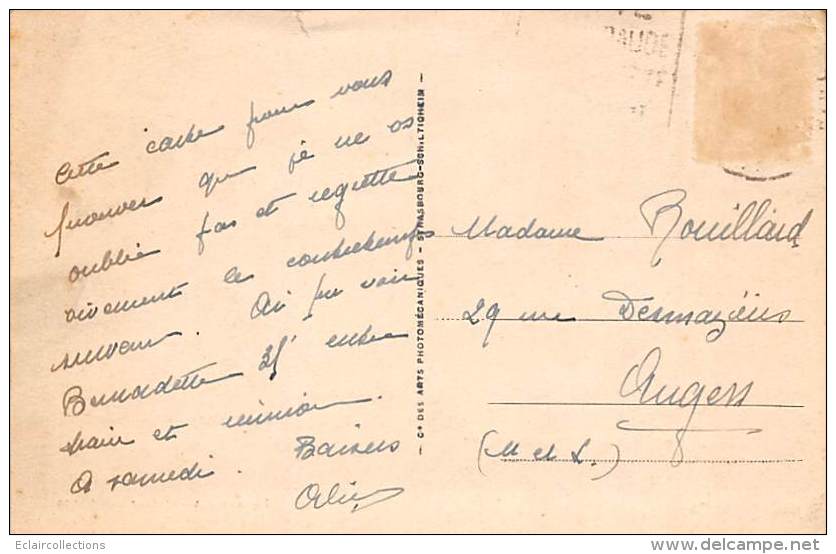 Cette carte pour vous
prouver que je ne os
oublie pas et regrette
vivement le contretemps
survenu. Ai pu voir
Bernadette 35' entre
train et réunion.
A samedi. Baisers
Madame Rouillard
29 rue Desmazières
Angers
(M et L.)
- Cie DES ARTS PHOTOMÉCANIQUES - STRASBOURG-SCHILTIGHEIM -
Eclaircollections
delcampe.net